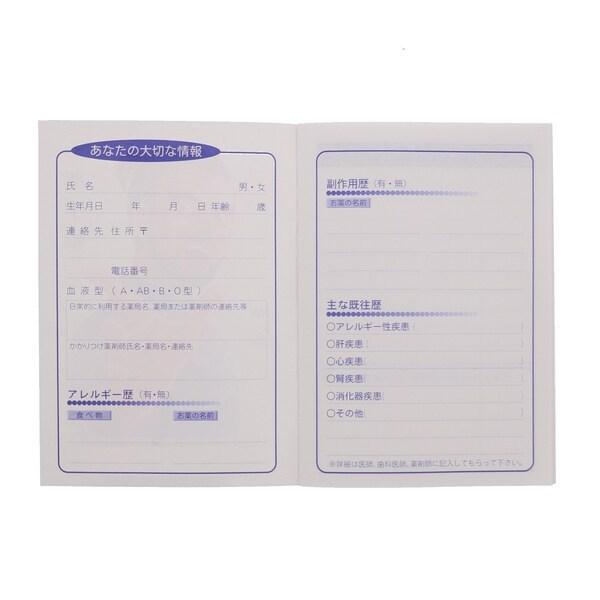 あなたの大切な情報
氏 名 男・女
生年月日 年 月 日 年齢 歳
連 絡 先 住 所 〒
電話番号
血 液 型 ( A・AB・B・O 型 )
日常的に利用する薬局名、薬局または薬剤師の連絡先等
かかりつけ薬剤師氏名・薬局名・連絡先
アレルギー歴 (有・無)
食 べ 物 お薬の名前
副作用歴 (有・無)
お薬の名前
主な既往歴
○アレルギー性疾患( )
○肝疾患( )
○心疾患( )
○腎疾患( )
○消化器疾患( )
○その他( )
※詳細は医師、歯科医師、薬剤師に記入してもらって下さい。